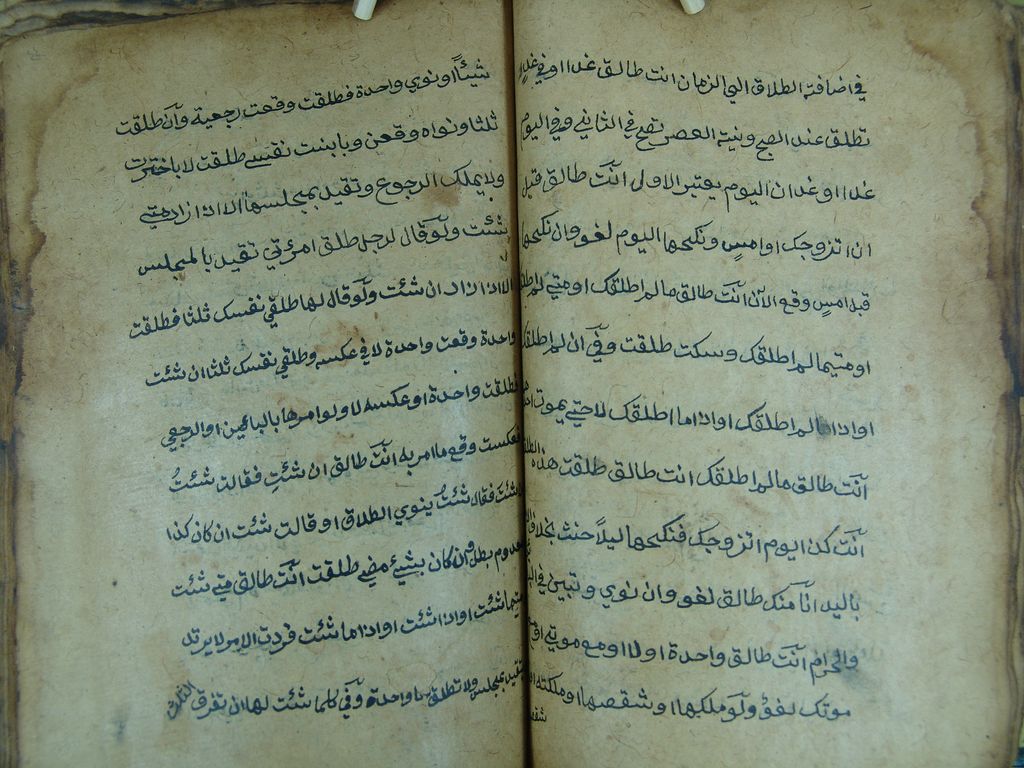 في اضافة الطلاق الي الزمان انت طالق غدا او في غد
تطلق عند الصبح ونية العصر تصح في الثاني وفي اليوم
غدا او غدا ن اليوم يعتبر الاول انت طالق قبل
ان اتزوجك او امس ونكحها اليوم لغو وان نكحها
قبل امس وقع الان انت طالق ما لم اطلقك او متي لم اطلقك
او متيما لم اطلقك وسكت طلقت وفي ان لم اطلقك
او اذا لم اطلقك او اذا ما اطلقك لا حتي يموت
انت طالق ما لم اطلقك انت طالق طلقت هذه الطلقة
انت كذا يوم اتزوجك فنكحها ليلا حنث بخلاف
باليد انا منك طالق لغو وان نوي وتبين في
والحرام انت طالق واحدة او لا او مع موتي او مع
موتك لغو ولو ملكها او شقصها او ملكته
شقصه
شيئا او نوي واحدة فطلقت وقعت رجعية وان طلقت
ثلثا ونواه وقعن وبابنت نفسي طلقت لا باخترت
ولا يملك الرجوع وتقيد بمجلسها الا اذا زاد متي
شئت ولو قال لرجل طلق امرئتي تقيد بالمجلس
الا اذا زاد ان شئت ولو قال لها طلقي نفسك ثلثا فطلقت
واحدة وقعت واحدة لا في عكسه وطلقي نفسك ثلثا ان شئت
فطلقت واحدة او عكسه لا ولو امرها بالبائن او الرجعي
فعكست وقع ما امر به انت طالق ان شئت فقالت شئت
ان شئت فقال شئت ينوي الطلاق او قالت شئت ان كان كذا
لمعدوم بطل وان كان بشيئ مضي طلقت انت طالق متي شئت
او متيما شئت او اذا شئت او اذا ما شئت فردت الامر لا يرتد
ولا تقيد بمجلس ولا تطلق الا واحدة وفي كلما شئت لها ان تفرق الثلث